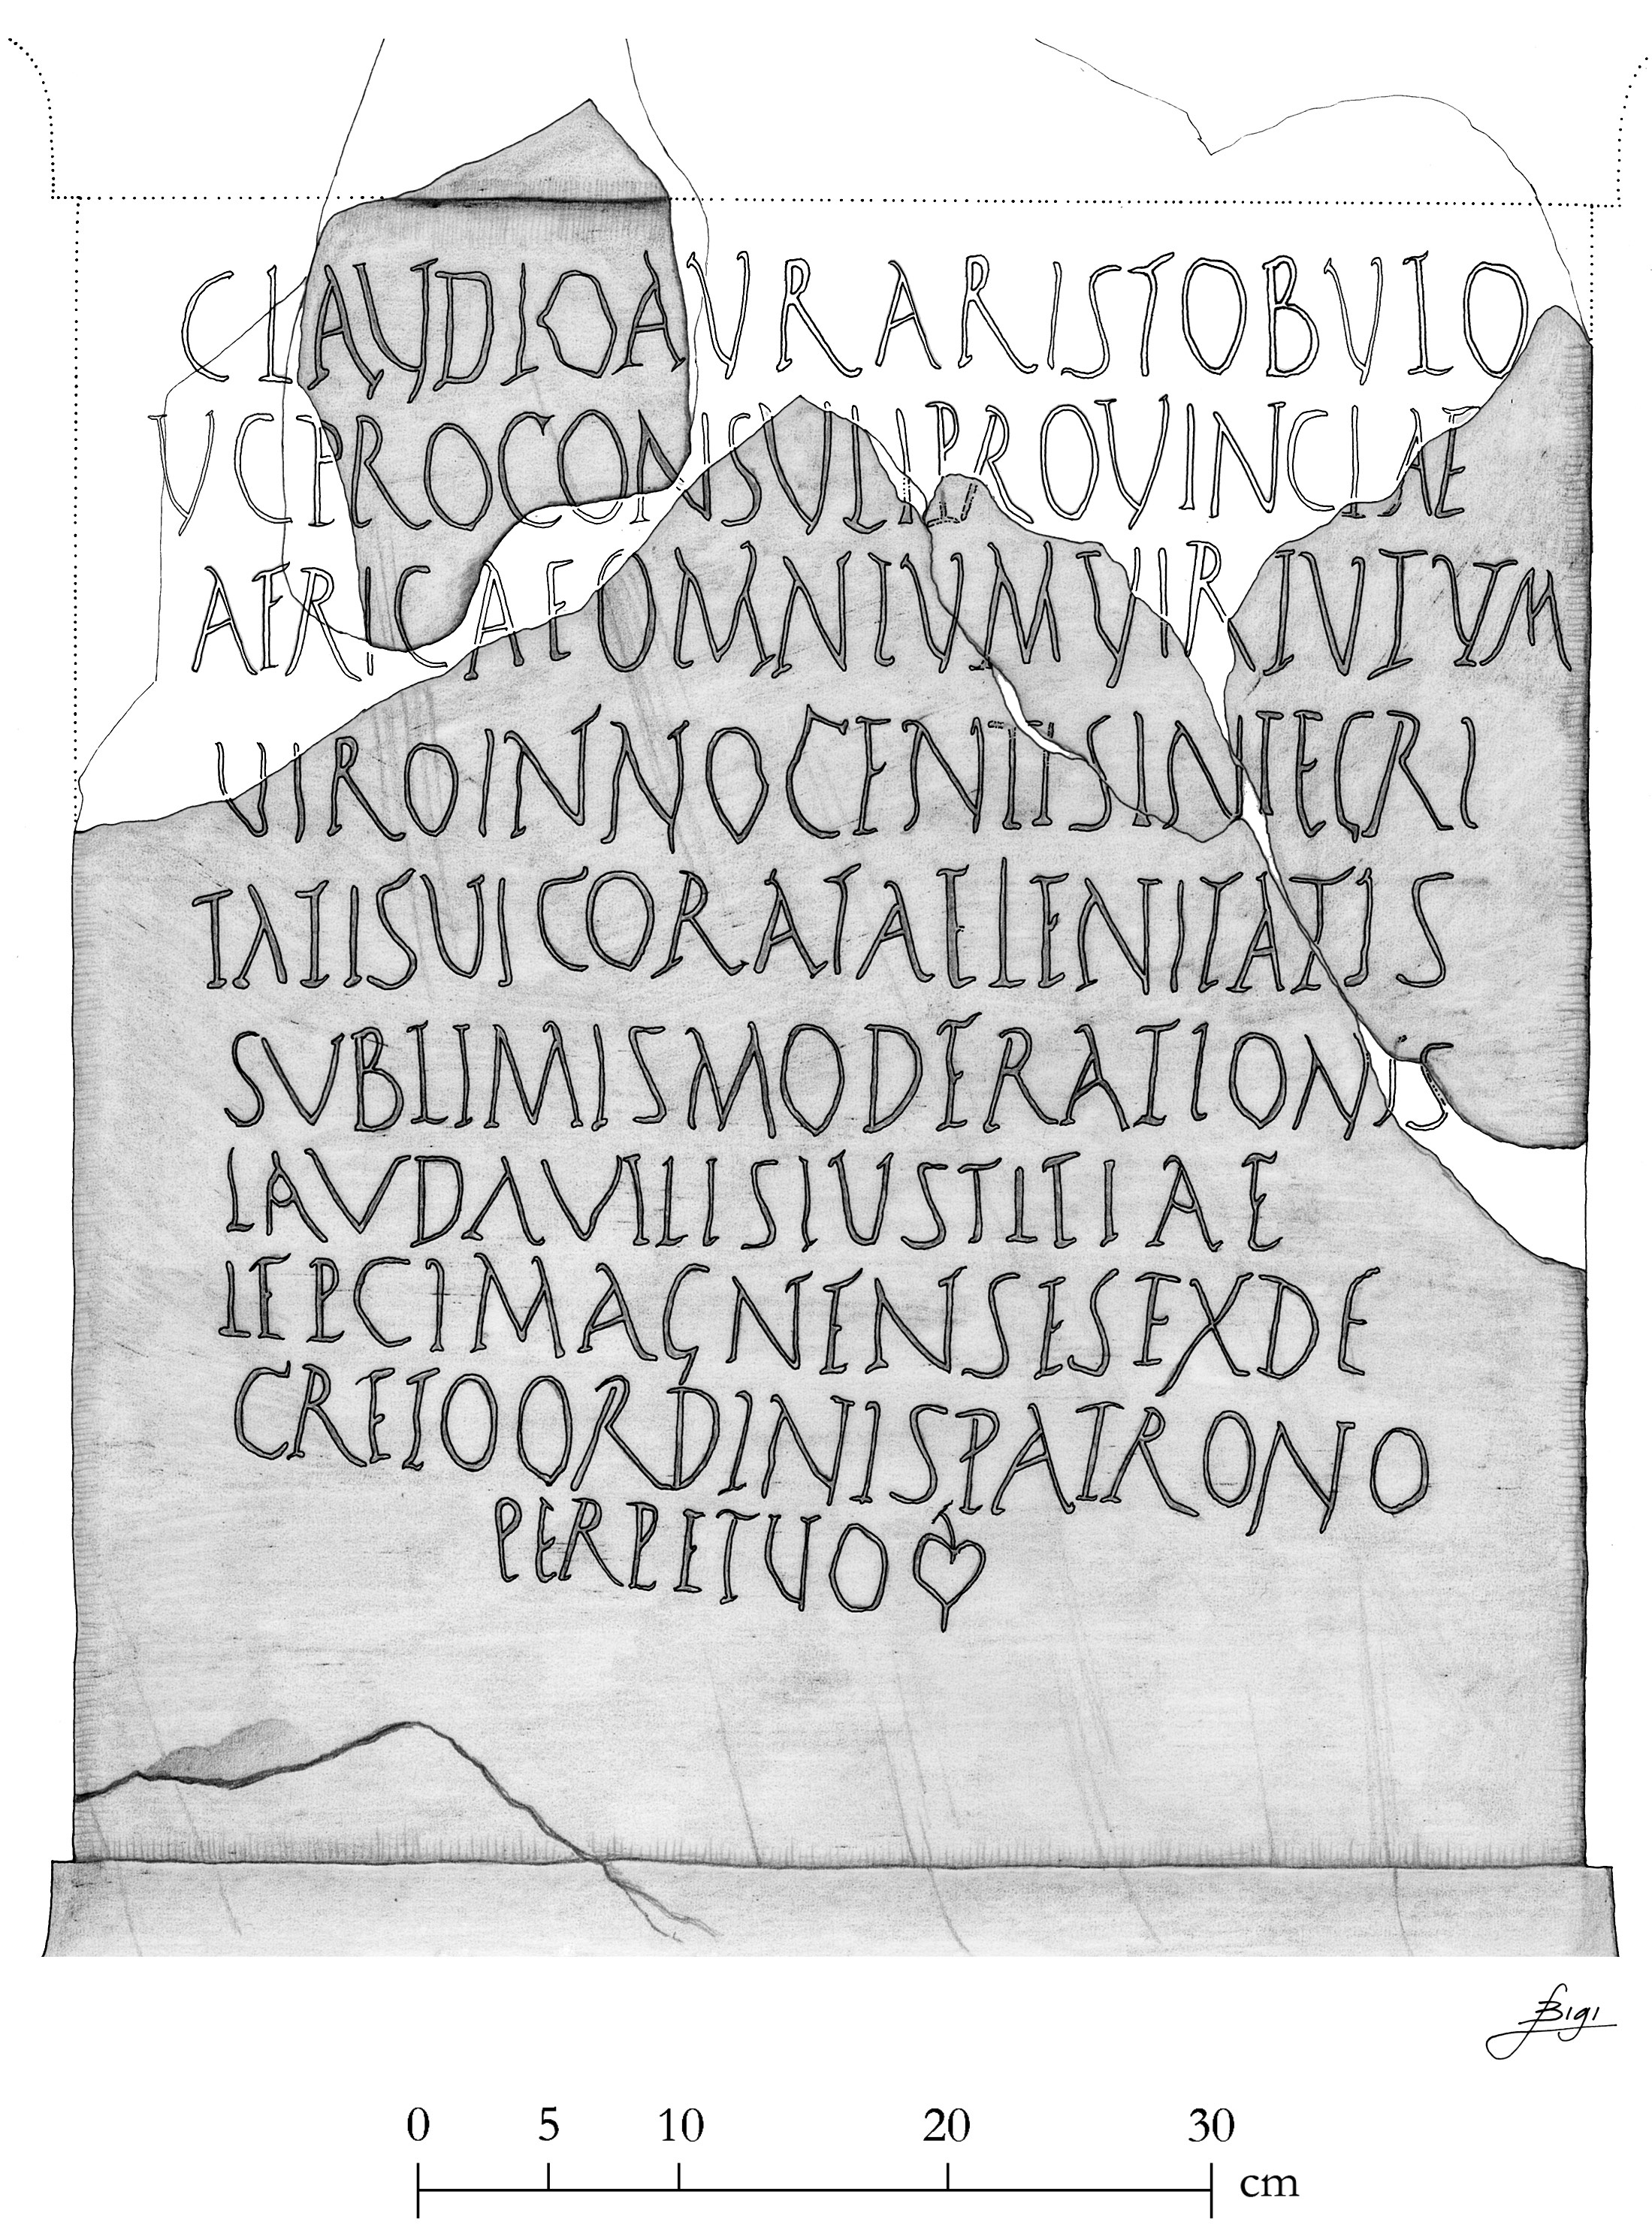 CLAUDIO AUR ARISTOBULO
V C PROCONSVLI PROVINCIAE
AFRICAE OMNIUM VIRTUTUM
VIRO INNOCENTIS INTEGRI
TATIS UIGORATAE LENITATIS
SUBLIMIS MODERATIONIS
LAVDAVILIS IUSTITIAE
LEPCIMAGNENSES EX DE
CRETO ORDINIS PATRONO
PERPETUO ❦
FBigi
0 5 10 20 30 cm